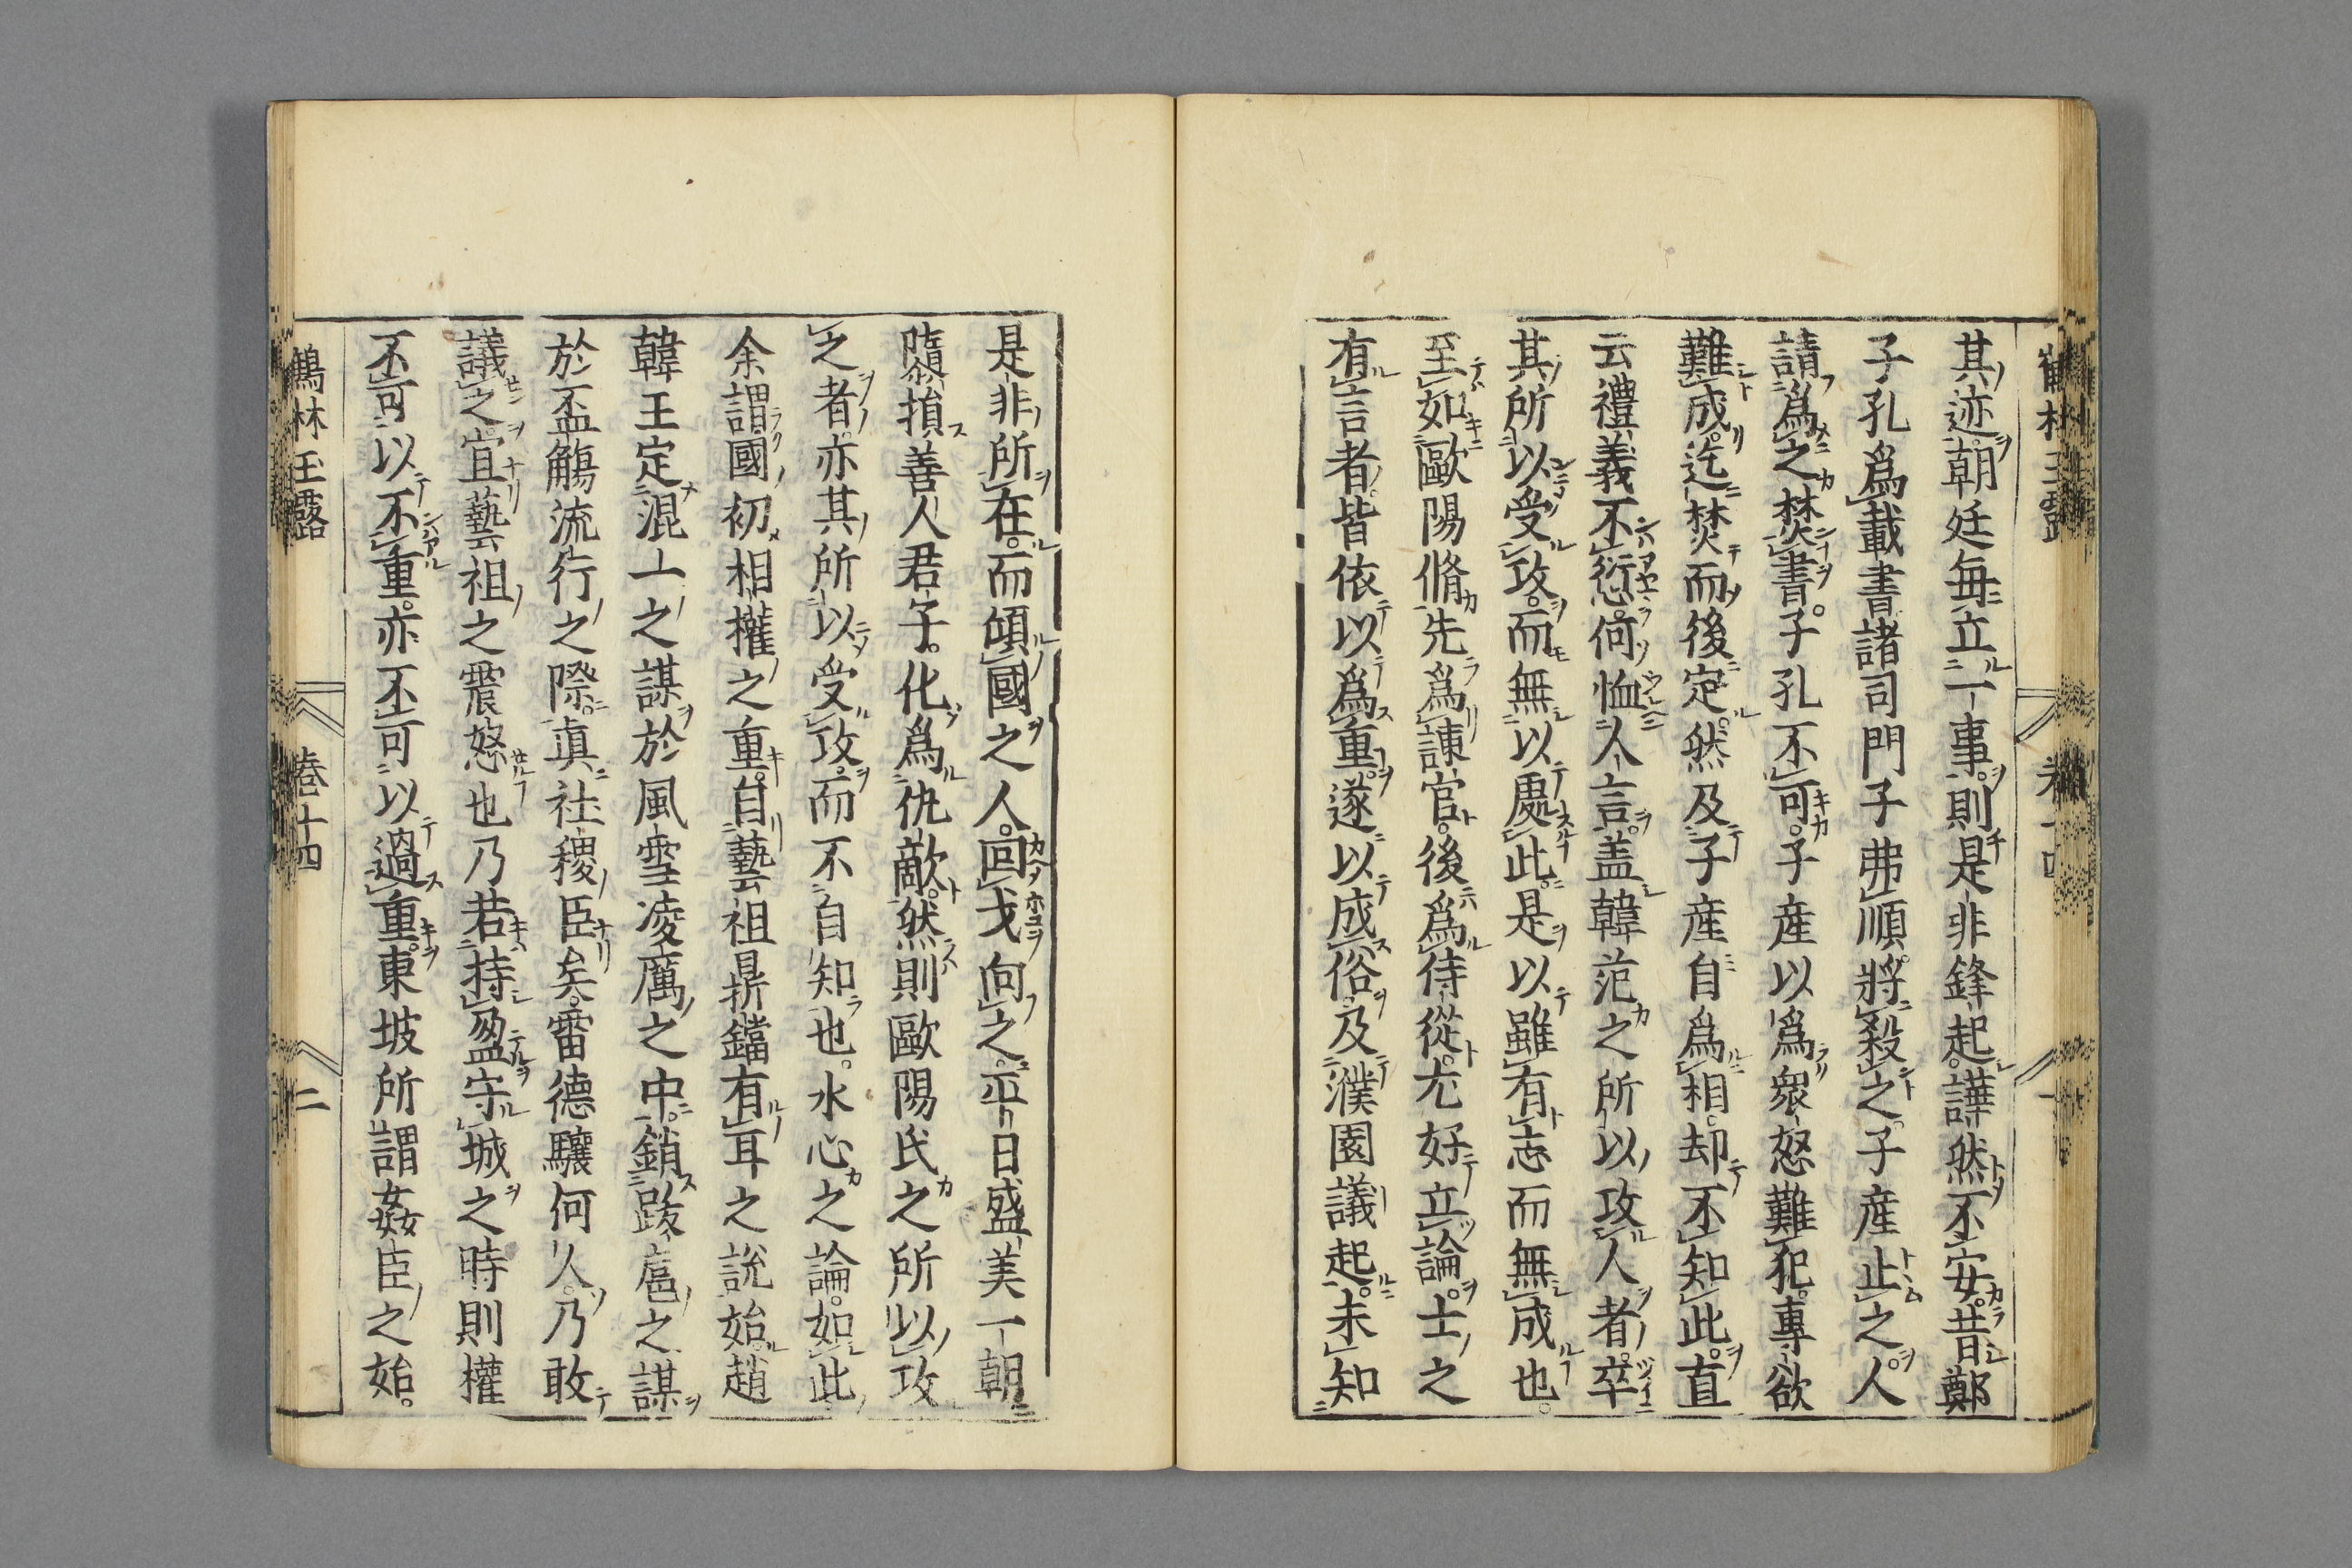 其迹朝廷毎立一事則是非鋒起譁然不安昔鄭
子孔爲載書諸司門子弗順將殺之子産止之人
請爲之焚書。子孔不可。子産以爲衆怒難犯專欲
難成迄焚而後定然及子産自爲相却不知此直
云禮義不愆何恤人言。盖韓范之所以攻人者卒
其所以受攻而無以處此是以雖有志而無成也。
至如歐陽脩先爲諫官。後爲侍從尤好立論士之
有言者皆依以爲重遂以成俗及濮園議起未知
是非所在。而傾國之人回戈向之平日盛美一朝
隳損善人君子。化爲仇敵然則歐陽氏之所以攻
之者亦其所以受攻而不自知也。水心之論如此
余謂國初相權之重自藝祖鼎鐺有耳之説始趙
韓王定混一之謀於風雪凌厲之中銷跋扈之謀
於盃觴流行之際眞社稷臣矣雷德驤何人乃敢
議之宜藝祖之震怒也乃若持盈守城之時則權
不可以不重亦不可以過重東坡所謂姦臣之始。
鶴林玉露　卷十四　二